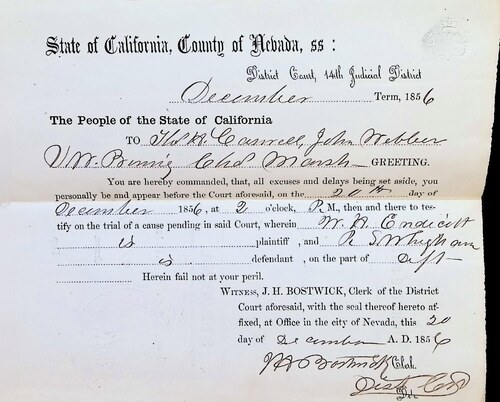 State of California, County of Nevada, ss:
District Court, 14th Judicial District
December Term, 1856
The People of the State of California
TO Thos H Caswell, John Webber
W. Chas Marsh GREETING.
You are hereby commanded, that, all excuses and delays being set aside, you
personally be and appear before the Court aforesaid, on the 20th day of
December 1856, at 2 o'clock, P. M., then and there to tes-
tify on the trial of a cause pending in said Court, wherein W. H. Endicott
is plaintiff, and R S Whigham
is defendant, on the part of Deft
Herein fail not at your peril.
WITNESS, J. H. BOSTWICK, Clerk of the District
Court aforesaid, with the seal thereof hereto af-
fixed, at Office in the city of Nevada, this 20
day of December A. D. 1856
J H Bostwick Clerk.
Dist Clk